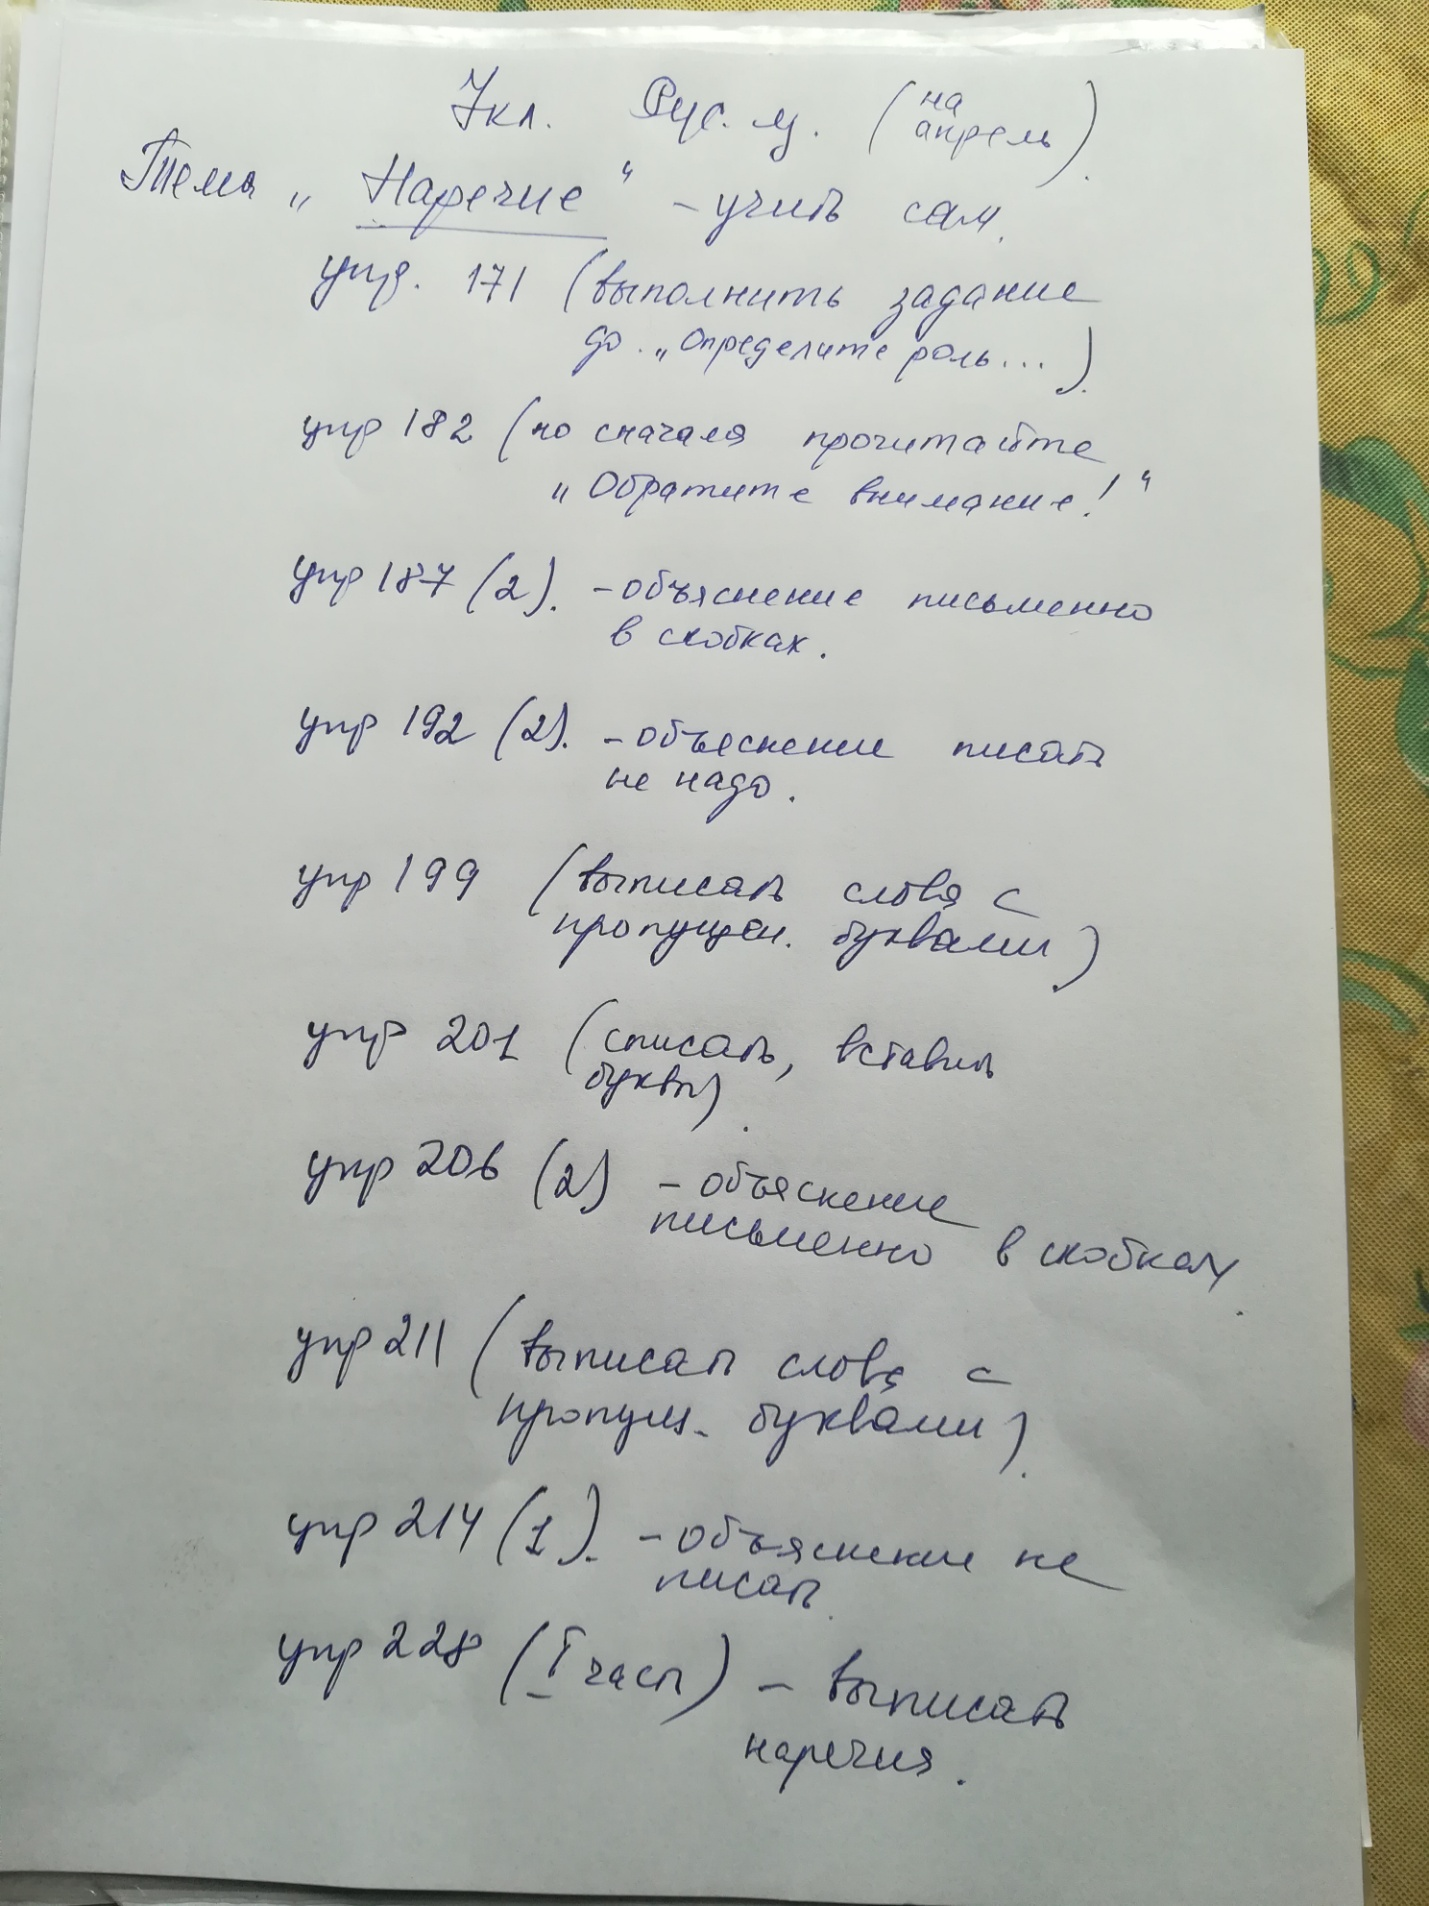 7кл. Рус. яз. (на апрель).
Тема „Наречие“ – учить сам.
упр. 171 (выполнить задание
до „Определите роль...).
упр 182 (но сначала прочитайте
„Обратите внимание!“
упр 187 (2). – объяснение письменно
в скобках.
упр 192 (2). – объеснение писать
не надо.
упр 199 (выписать слова с
пропущен. буквами).
упр 201 (списать, вставить
буквы).
упр 206 (2) – объяснение
письменно в скобках.
упр 211 (выписать слова с
пропущ. буквами).
упр 214 (1). – объяснение не
писать.
упр 228 (I часть) – выписать
наречия.